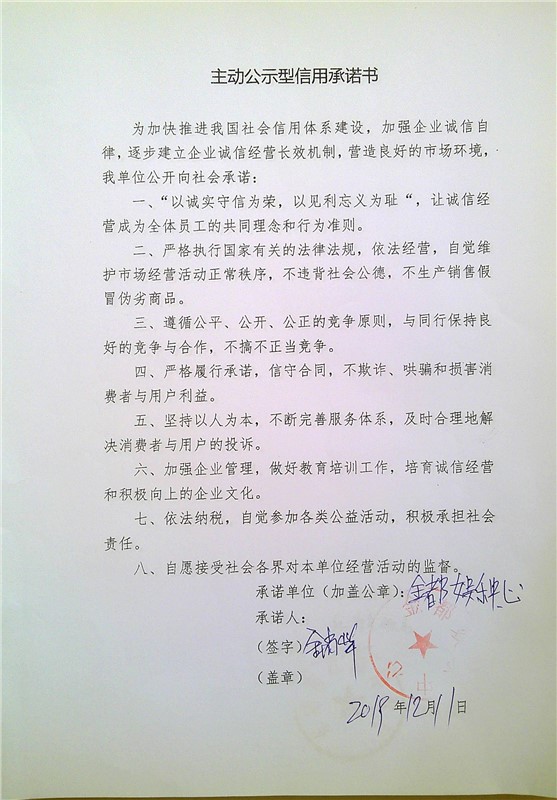 主动公示型信用承诺书
为加快推进我国社会信用体系建设，加强企业诚信自
律，逐步建立企业诚信经营长效机制，营造良好的市场环境，
我单位公开向社会承诺：
一、“以诚实守信为荣，以见利忘义为耻“，让诚信经
营成为全体员工的共同理念和行为准则。
二、严格执行国家有关的法律法规，依法经营，自觉维
护市场经营活动正常秩序，不违背社会公德，不生产销售假
冒伪劣商品。
三、遵循公平、公开、公正的竞争原则，与同行保持良
好的竞争与合作，不搞不正当竞争。
四、严格履行承诺，信守合同，不欺诈、哄骗和损害消
费者与用户利益。
五、坚持以人为本，不断完善服务体系，及时合理地解
决消费者与用户的投诉。
六、加强企业管理，做好教育培训工作，培育诚信经营
和积极向上的企业文化。
七、依法纳税，自觉参加各类公益活动，积极承担社会
责任。
八、自愿接受社会各界对本单位经营活动的监督。
承诺单位（加盖公章）：金都娱乐中心
承诺人：
（签字）
（盖章）
2019年12月11日